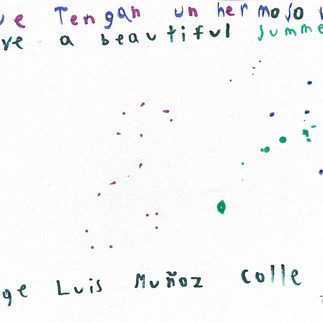 ve Tengan un hermoso
ve a beautiful summe
ge Luis Muñoz Colle